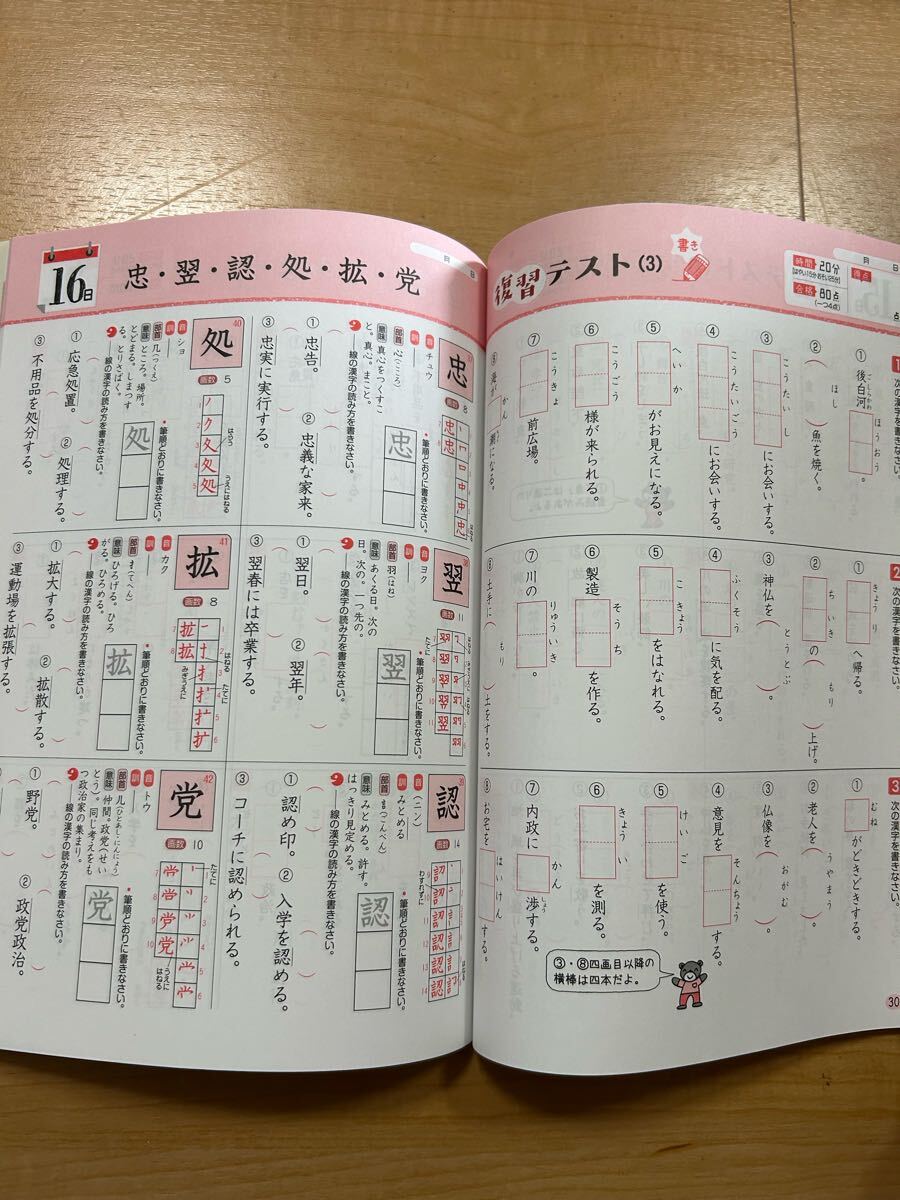 復習テスト(3)
書き
月 日
時間 20分
(はやい15分おそい25分)
合格 80点
(一つ4点)
得点
点
1 次の漢字を書きなさい。
① 後白河ほうおう。
ごしらかわ
② ( ほし )魚を焼く。
③ こうたいしにお会いする。
④ こうたいごうにお会いする。
⑤ へいかがお見えになる。
⑥ こうごう様が来られる。
⑦ こうきょ前広場。
2 次の漢字を書きなさい。
① きょうりへ帰る。
② ちいきの( もり )上げ。
③ 神仏を( とうとぶ )
④ ふくそうに気を配る。
⑤ こきょうをはなれる。
⑥ 製造そうちを作る。
⑦ 川のりゅういき。
⑧ 土手に( もり )土をする。
3 次の漢字を書きなさい。
① むねがどきどきする。
② 老人を( うやまう )。
③ 仏像を( おがむ )。
④ 意見をそんちょうする。
⑤ けいごを使う。
⑥ きょういを測る。
⑦ 内政にかん渉する。
しょう
⑧ お宅をはいけんする。
③・⑧四画目以降の
横棒は四本だよ。
30
16日
忠・翌・認・処・拡・党
月 日
忠
画数 8
音 チュウ
訓
部首 心(こころ)
意味 真心をつくすこと。真心。まこと。
・筆順どおりに書きなさい。
忠
線の漢字の読み方を書きなさい。
① 忠告。
② 忠義な家来。
③ 忠実に実行する。
翌
画数 11
音 ヨク
訓
部首 羽(はね)
意味 あくる日。次の日。次の。一つ先の。
・筆順どおりに書きなさい。
翌
線の漢字の読み方を書きなさい。
① 翌日。
② 翌年。
③ 翌春には卒業する。
認
画数 14
音 (ニン)
訓 みとめる
部首 言(ごんべん)
意味 みとめる。許す。はっきり見定める。
・筆順どおりに書きなさい。
認
線の漢字の読み方を書きなさい。
① 認め印。
② 入学を認める。
③ コーチに認められる。
40
処
画数 5
音 ショ
訓
部首 几(つくえ)
意味 ところ。場所。とどまる。しまつする。とりさばく。
・筆順どおりに書きなさい。
処
線の漢字の読み方を書きなさい。
① 応急処置。
② 処理する。
③ 不用品を処分する。
41
拡
画数 8
音 カク
訓
部首 扌(てへん)
意味 ひろげる。ひろがる。ひろめる。
・筆順どおりに書きなさい。
拡
線の漢字の読み方を書きなさい。
① 拡大する。
② 拡散する。
③ 運動場を拡張する。
42
党
画数 10
音 トウ
訓
部首 儿(ひとあし・にんにょう)
意味 仲間。政党(せいとう)。同じ考えをもつ政治家の集まり。
・筆順どおりに書きなさい。
党
線の漢字の読み方を書きなさい。
① 野党。
② 政党政治。